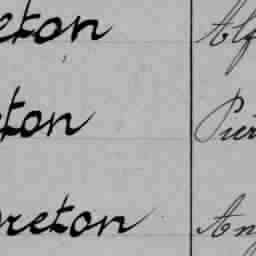 eton Alf
ton Pier
reton An